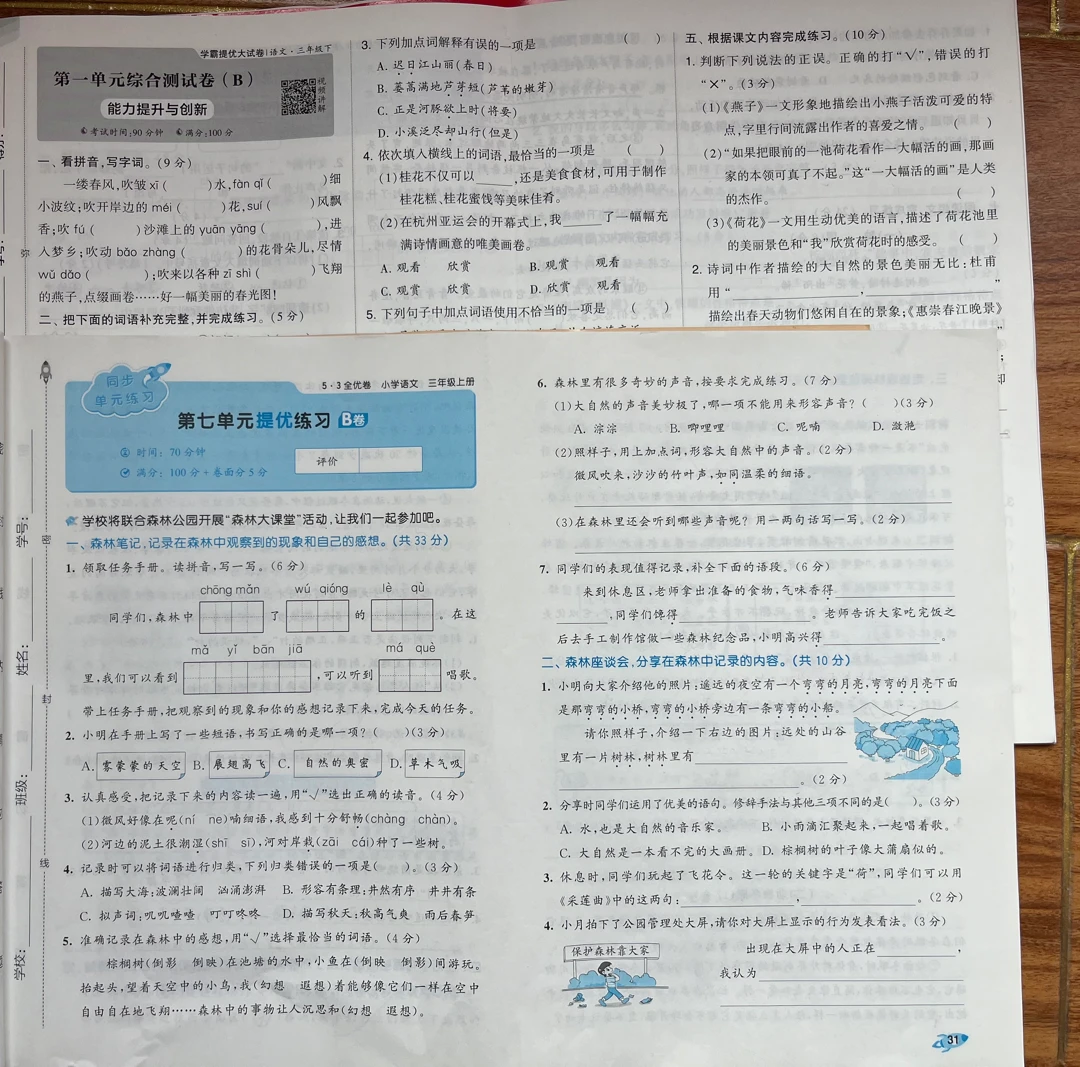 学霸提优大试卷 语文·三年级下
第一单元综合测试卷(B)
能力提升与创新
考试时间:90分钟 满分:100分
视频讲解
一、看拼音,写字词。(9分)
一缕春风,吹皱xī( )水,fàn qǐ( )细
小波纹;吹开岸边的 méi( )花,suí( )风飘
香;吹 fú( )沙滩上的 yuān yāng( ),进
入梦乡;吹动 bāo zhàng( )的花骨朵儿,尽情
wǔ dǎo( );吹来以各种 zī shì( )飞翔
的燕子,点缀画卷……好一幅美丽的春光图!
二、把下面的词语补充完整,并完成练习。(5分)
3. 下列加点词解释有误的一项是 ( )
A. 迟日江山丽(春日)
B. 蒌蒿满地芦芽短(芦苇的嫩芽)
C. 正是河豚欲上时(将要)
D. 小溪泛尽却山行(但是)
4. 依次填入横线上的词语,最恰当的一项是 ( )
(1)桂花不仅可以____,还是美食食材,可用于制作
桂花糕、桂花蜜饯等美味佳肴。
(2)在杭州亚运会的开幕式上,我____了一幅幅充
满诗情画意的唯美画卷。
A. 观看 欣赏 B. 观赏 观看
C. 观赏 欣赏 D. 欣赏 观看
5. 下列句子中加点词语使用不恰当的一项是 ( )
五、根据课文内容完成练习。(10分)
1. 判断下列说法的正误。正确的打“√”,错误的打
“×”。(3分)
(1)《燕子》一文形象地描绘出小燕子活泼可爱的特
点,字里行间流露出作者的喜爱之情。 ( )
(2)“如果把眼前的一池荷花看作一大幅活的画,那画
家的本领可真了不起。”这“一大幅活的画”是人类
的杰作。 ( )
(3)《荷花》一文用生动优美的语言,描述了荷花池里
的美丽景色和“我”欣赏荷花时的感受。 ( )
2. 诗词中作者描绘的大自然的景色美丽无比:杜甫
用“____,____”
描绘出春天动物们悠闲自在的景象;《惠崇春江晚景》
同步
单元练习
5·3全优卷 小学语文 三年级上册
第七单元提优练习 B卷
时间:70分钟
满分:100分+卷面分5分
评价
学校将联合森林公园开展“森林大课堂”活动,让我们一起参加吧。
一、森林笔记,记录在森林中观察到的现象和自己的感想。(共33分)
1. 领取任务手册。读拼音,写一写。(6分)
chōng mǎn wú qióng lè qù
同学们,森林中 了 的 。在这
mǎ yǐ bān jiā má què
里,我们可以看到 ,可以听到 唱歌。
带上任务手册,把观察到的现象和你的感想记录下来,完成今天的任务。
2. 小明在手册上写了一些短语,书写正确的是哪一项?( )(3分)
A. 雾蒙蒙的天空 B. 展翅高飞 C. 自然的奥密 D. 草木气吸
3. 认真感受,把记录下来的内容读一遍,用“√”选出正确的读音。(4分)
(1)微风好像在呢(ní ne)喃细语,我感到十分舒畅(chàng chàn)。
(2)河边的泥土很潮湿(shī sī),河对岸栽(zāi cái)种了一些树。
4. 记录时可以将词语进行归类,下列归类错误的一项是( )。(3分)
A. 描写大海:波澜壮阔 汹涌澎湃 B. 形容有条理:井然有序 井井有条
C. 拟声词:叽叽喳喳 叮叮咚咚 D. 描写秋天:秋高气爽 雨后春笋
5. 准确记录在森林中的感想,用“√”选择最恰当的词语。(4分)
棕榈树(倒影 倒映)在池塘的水中,小鱼在(倒映 倒影)间游玩。
抬起头,望着天空中的小鸟,我(幻想 遐想)着能够像它们一样在空中
自由自在地飞翔……森林中的事物让人沉思和(幻想 遐想)。
6. 森林里有很多奇妙的声音,按要求完成练习。(7分)
(1)大自然的声音美妙极了,哪一项不能用来形容声音?( )(3分)
A. 淙淙 B. 唧哩哩 C. 呢喃 D. 潋滟
(2)照样子,用上加点词,形容大自然中的声音。(2分)
微风吹来,沙沙的竹叶声,如同温柔的细语。
(3)在森林里还会听到哪些声音呢?用一两句话写一写。(2分)
7. 同学们的表现值得记录,补全下面的语段。(6分)
来到休息区,老师拿出准备的食物,气味香得____
____,同学们馋得____。老师告诉大家吃完饭之
后去手工制作馆做一些森林纪念品,小明高兴得____。
二、森林座谈会,分享在森林中记录的内容。(共10分)
1. 小明向大家介绍他的照片:遥远的夜空有一个弯弯的月亮,弯弯的月亮下面
是那弯弯的小桥,弯弯的小桥旁边有一条弯弯的小船。
请你照样子,介绍一下右边的图片:远处的山谷
里有一片树林,树林里有____
____。(2分)
2. 分享时同学们运用了优美的语句。修辞手法与其他三项不同的是( )。(3分)
A. 水,也是大自然的音乐家。 B. 小雨滴汇聚起来,一起唱着歌。
C. 大自然是一本看不完的大画册。 D. 棕榈树的叶子像大蒲扇似的。
3. 休息时,同学们玩起了飞花令。这一轮的关键字是“荷”,同学们可以用
《采莲曲》中的这两句:____,____。(2分)
4. 小月拍下了公园管理处大屏,请你对大屏上显示的行为发表看法。(3分)
保护森林靠大家
出现在大屏中的人正在____,
我认为____
31
学号:
姓名:
班级:
学校:
密
封
线